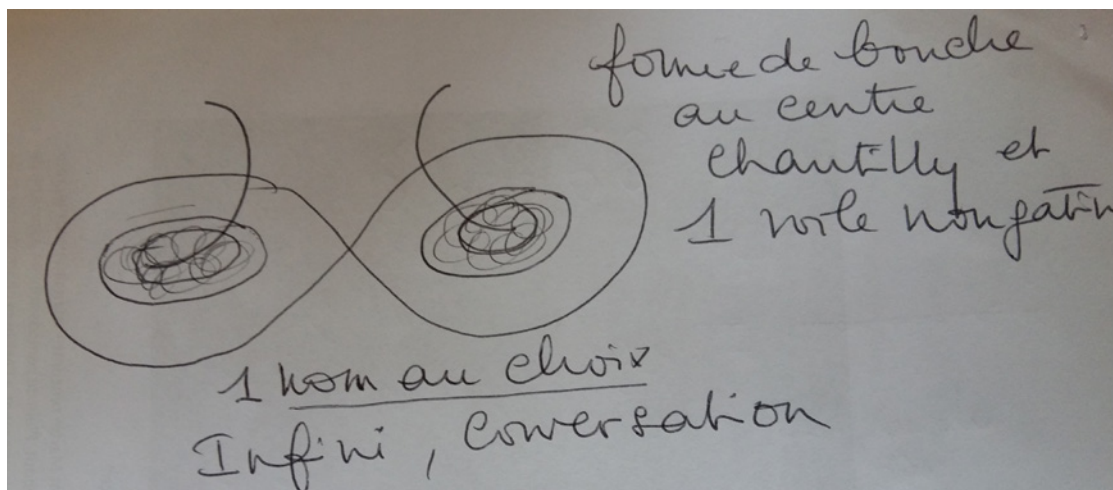 forme de bouche
au centre
chantilly et
1 voile nougatin
1 nom au choix
Infini, conversation